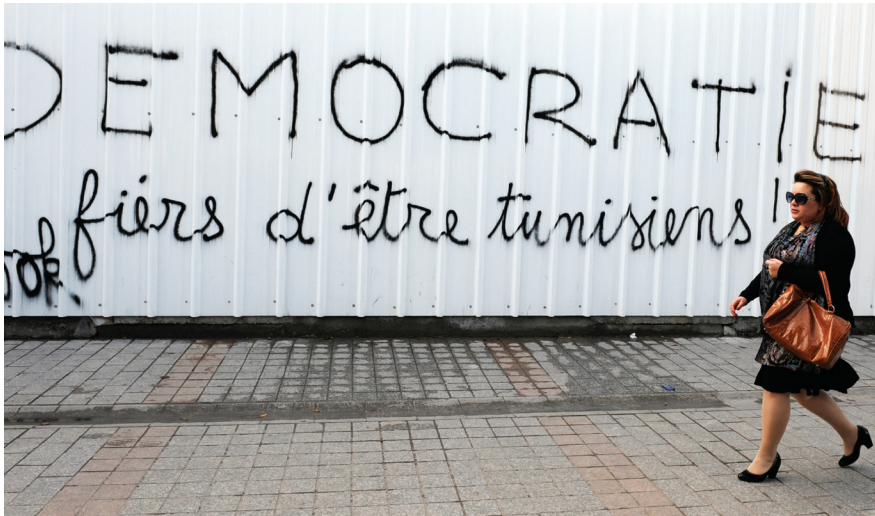 DEMOCRATiE
fiérs d'être tunisiens!
ook.